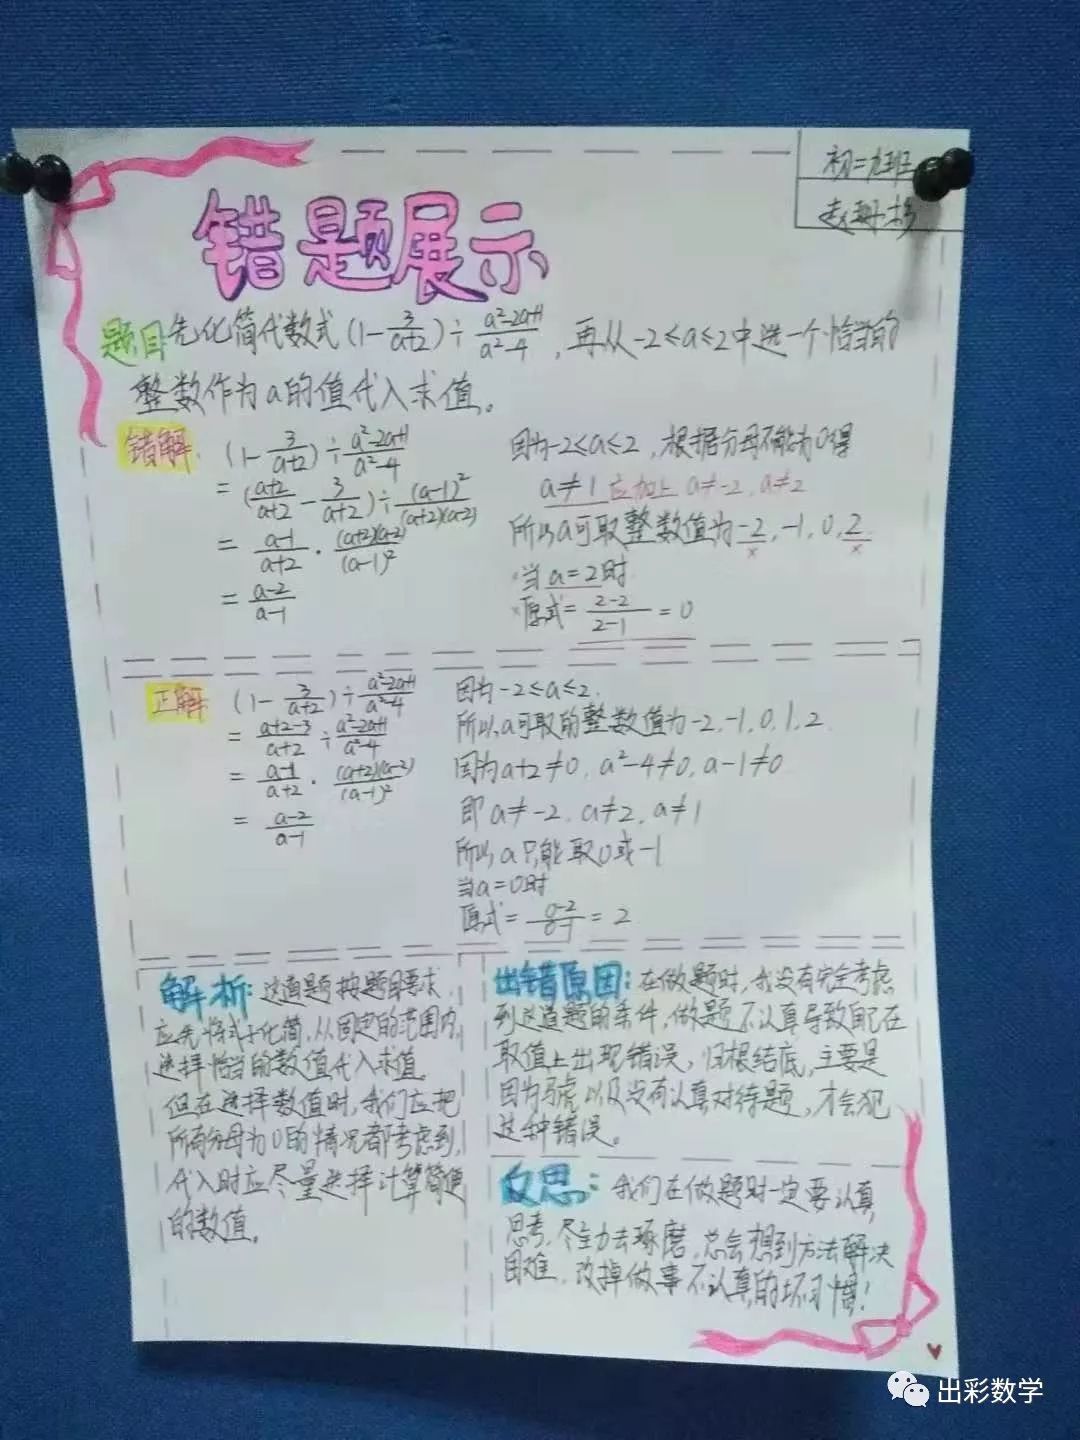 初二九班
错题展示
题目 先化简代数式(1-3/(a+2))÷(a²-2a+1)/(a²-4),再从-2≤a≤2中选一个恰当的
整数作为a的值代入求值。
错解: (1-3/(a+2))÷(a²-2a+1)/(a²-4)
=((a+2)/(a+2)-3/(a+2))÷(a-1)²/((a+2)(a-2))
=(a-1)/(a+2)·((a+2)(a-2))/(a-1)²
=(a-2)/(a-1)
因为-2≤a≤2,根据分母不能为0得
a≠1 应加上 a≠-2,a≠2
所以a可取整数值为-2,-1,0,2
x x
当a=2时
x 原式=(2-2)/(2-1)=0
正解: (1-3/(a+2))÷(a²-2a+1)/(a²-4)
=(a+2-3)/(a+2)÷(a²-2a+1)/(a²-4)
=(a-1)/(a+2)·((a+2)(a-2))/(a-1)²
=(a-2)/(a-1)
因为-2≤a≤2.
所以,a可取的整数值为-2,-1,0,1,2
因为a+2≠0,a²-4≠0,a-1≠0
即a≠-2,a≠2,a≠1
所以,a只能取0或-1
当a=0时
原式=(0-2)/(0-1)=2
解析:这道题按题目要求,
应先将式子化简,从固定的范围内,
选择恰当的数值代入求值。
但在选择数值时,我们应把
所有分母为0的情况都考虑到,
代入时应尽量选择计算简便
的数值。
出错原因:在做题时,我没有完全考虑
到这道题的条件,做题不认真导致自己在
取值上出现错误,归根结底,主要是
因为马虎以及没有认真对待题,才会犯
这种错误。
反思:我们在做题时一定要认真
思考,尽全力去琢磨,总会想到方法解决
困难,改掉做事不认真的坏习惯!
出彩数学